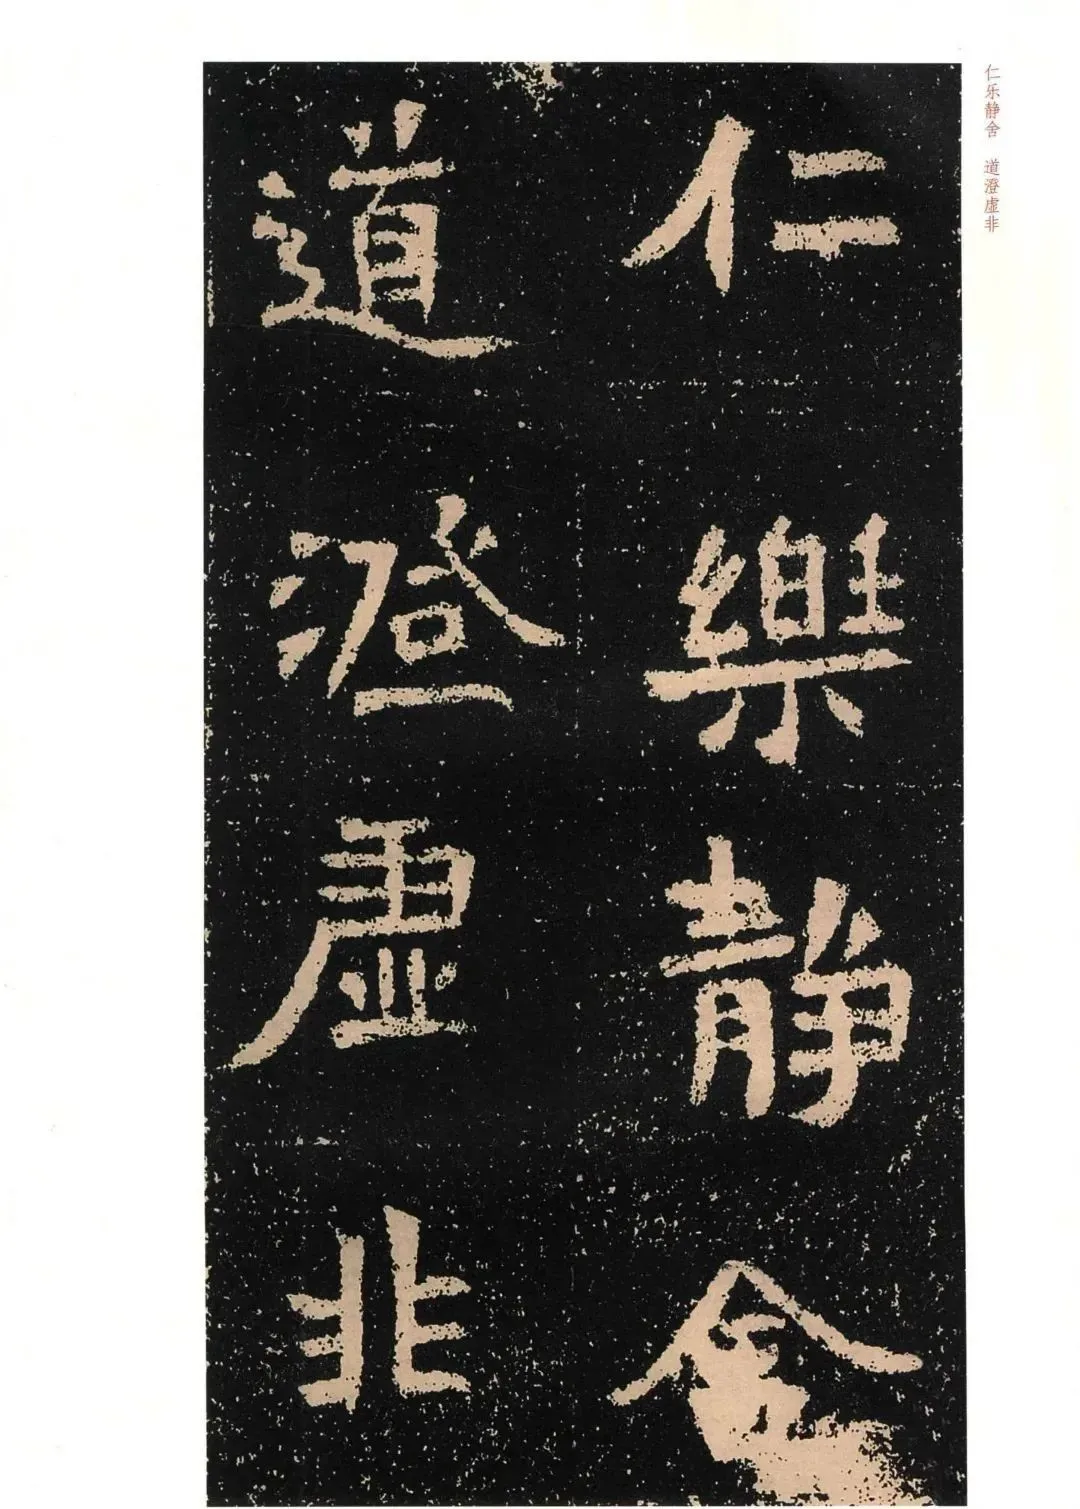 仁乐静舍 道澄虚非
仁樂静舍
道澄虚非